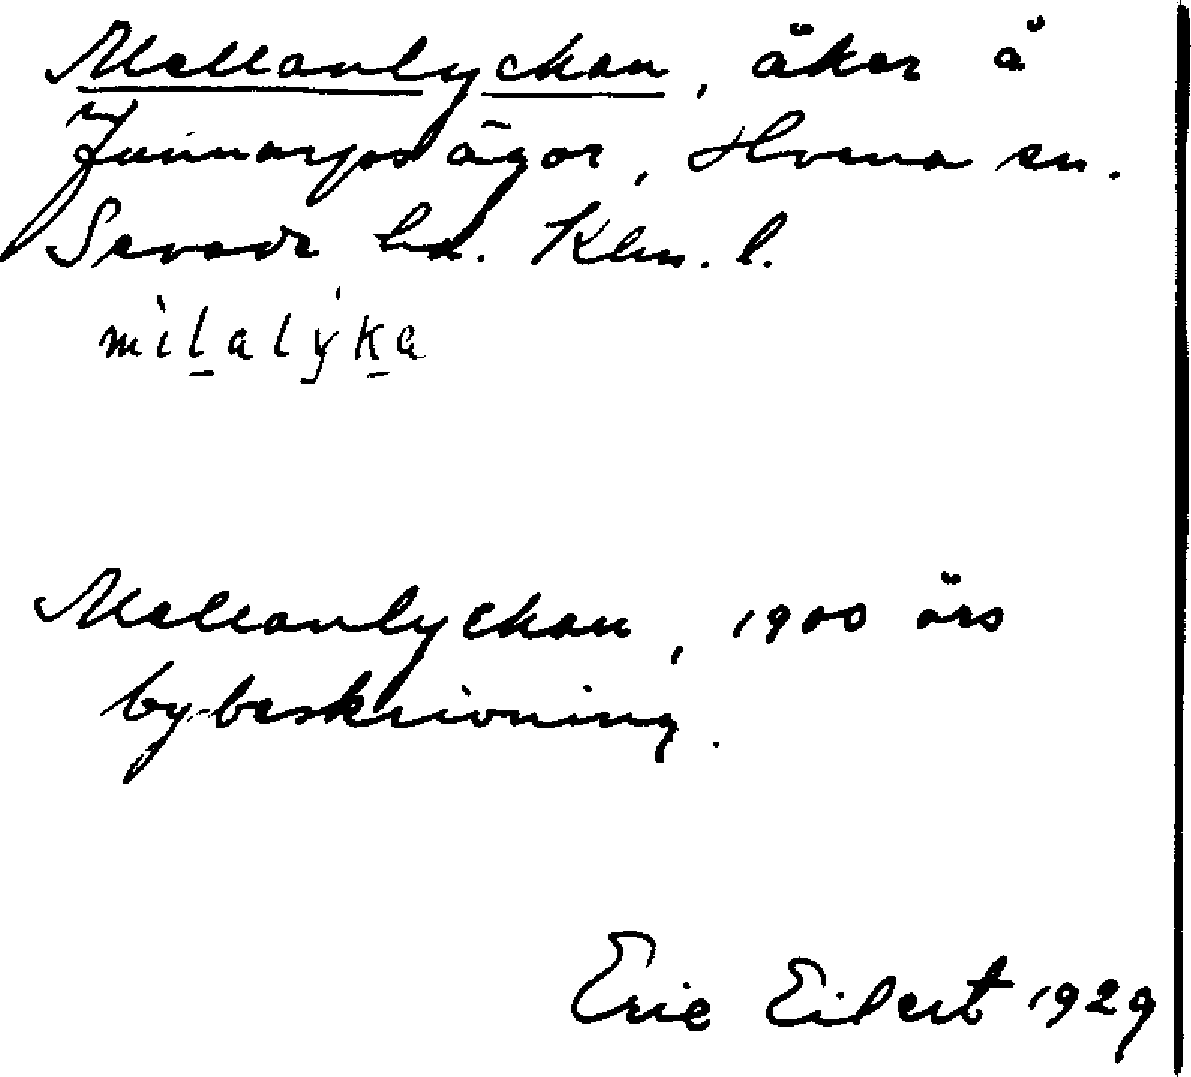 Mellanlyckan, åker å
Junnarps ägor, Hvena sn.
Sevede hd. Klm. l.
mìlalýka
Mellanlyckan, 1900 års
bybeskrivning.
Eric Eilert 1929